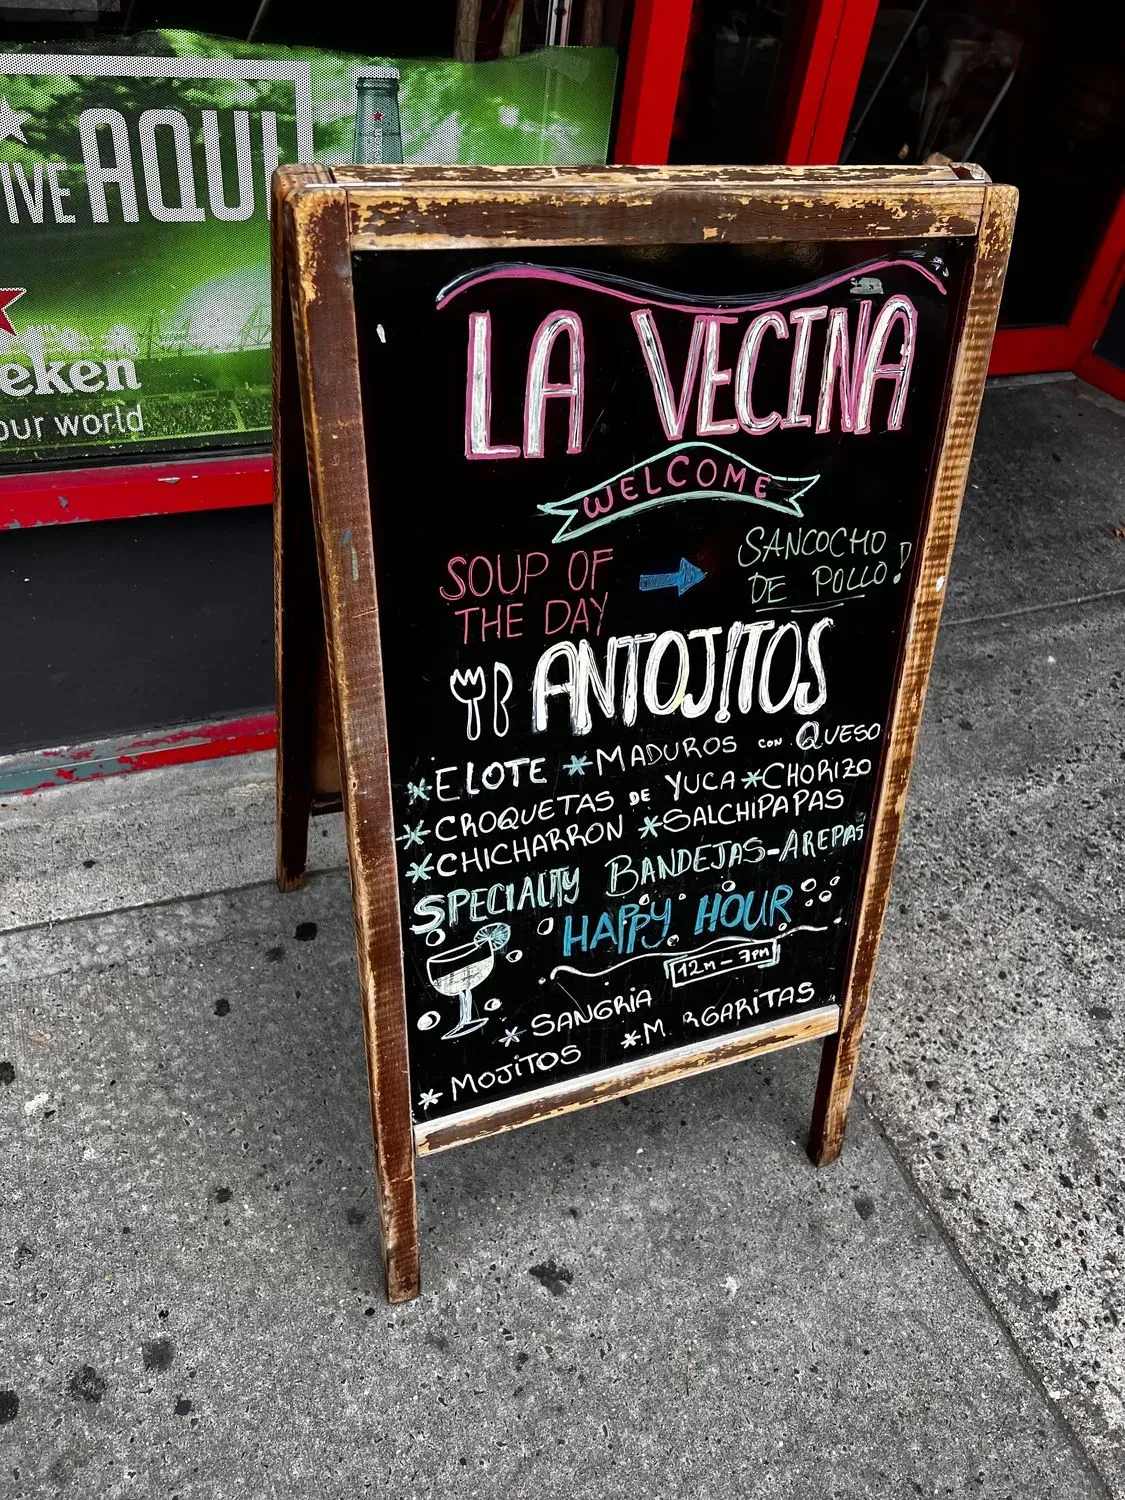 IVE AQUÍ
eken
our world
LA VECINA
WELCOME
SOUP OF
THE DAY
SANCOCHO
DE POLLO!
ANTOJITOS
*ELOTE *MADUROS CON QUESO
*CROQUETAS DE YUCA *CHORIZO
*CHICHARRON *SALCHIPAPAS
SPECIALITY BANDEJAS-AREPAS
HAPPY HOUR
12M - 7PM
*SANGRIA
*MOJITOS *M RGARITAS